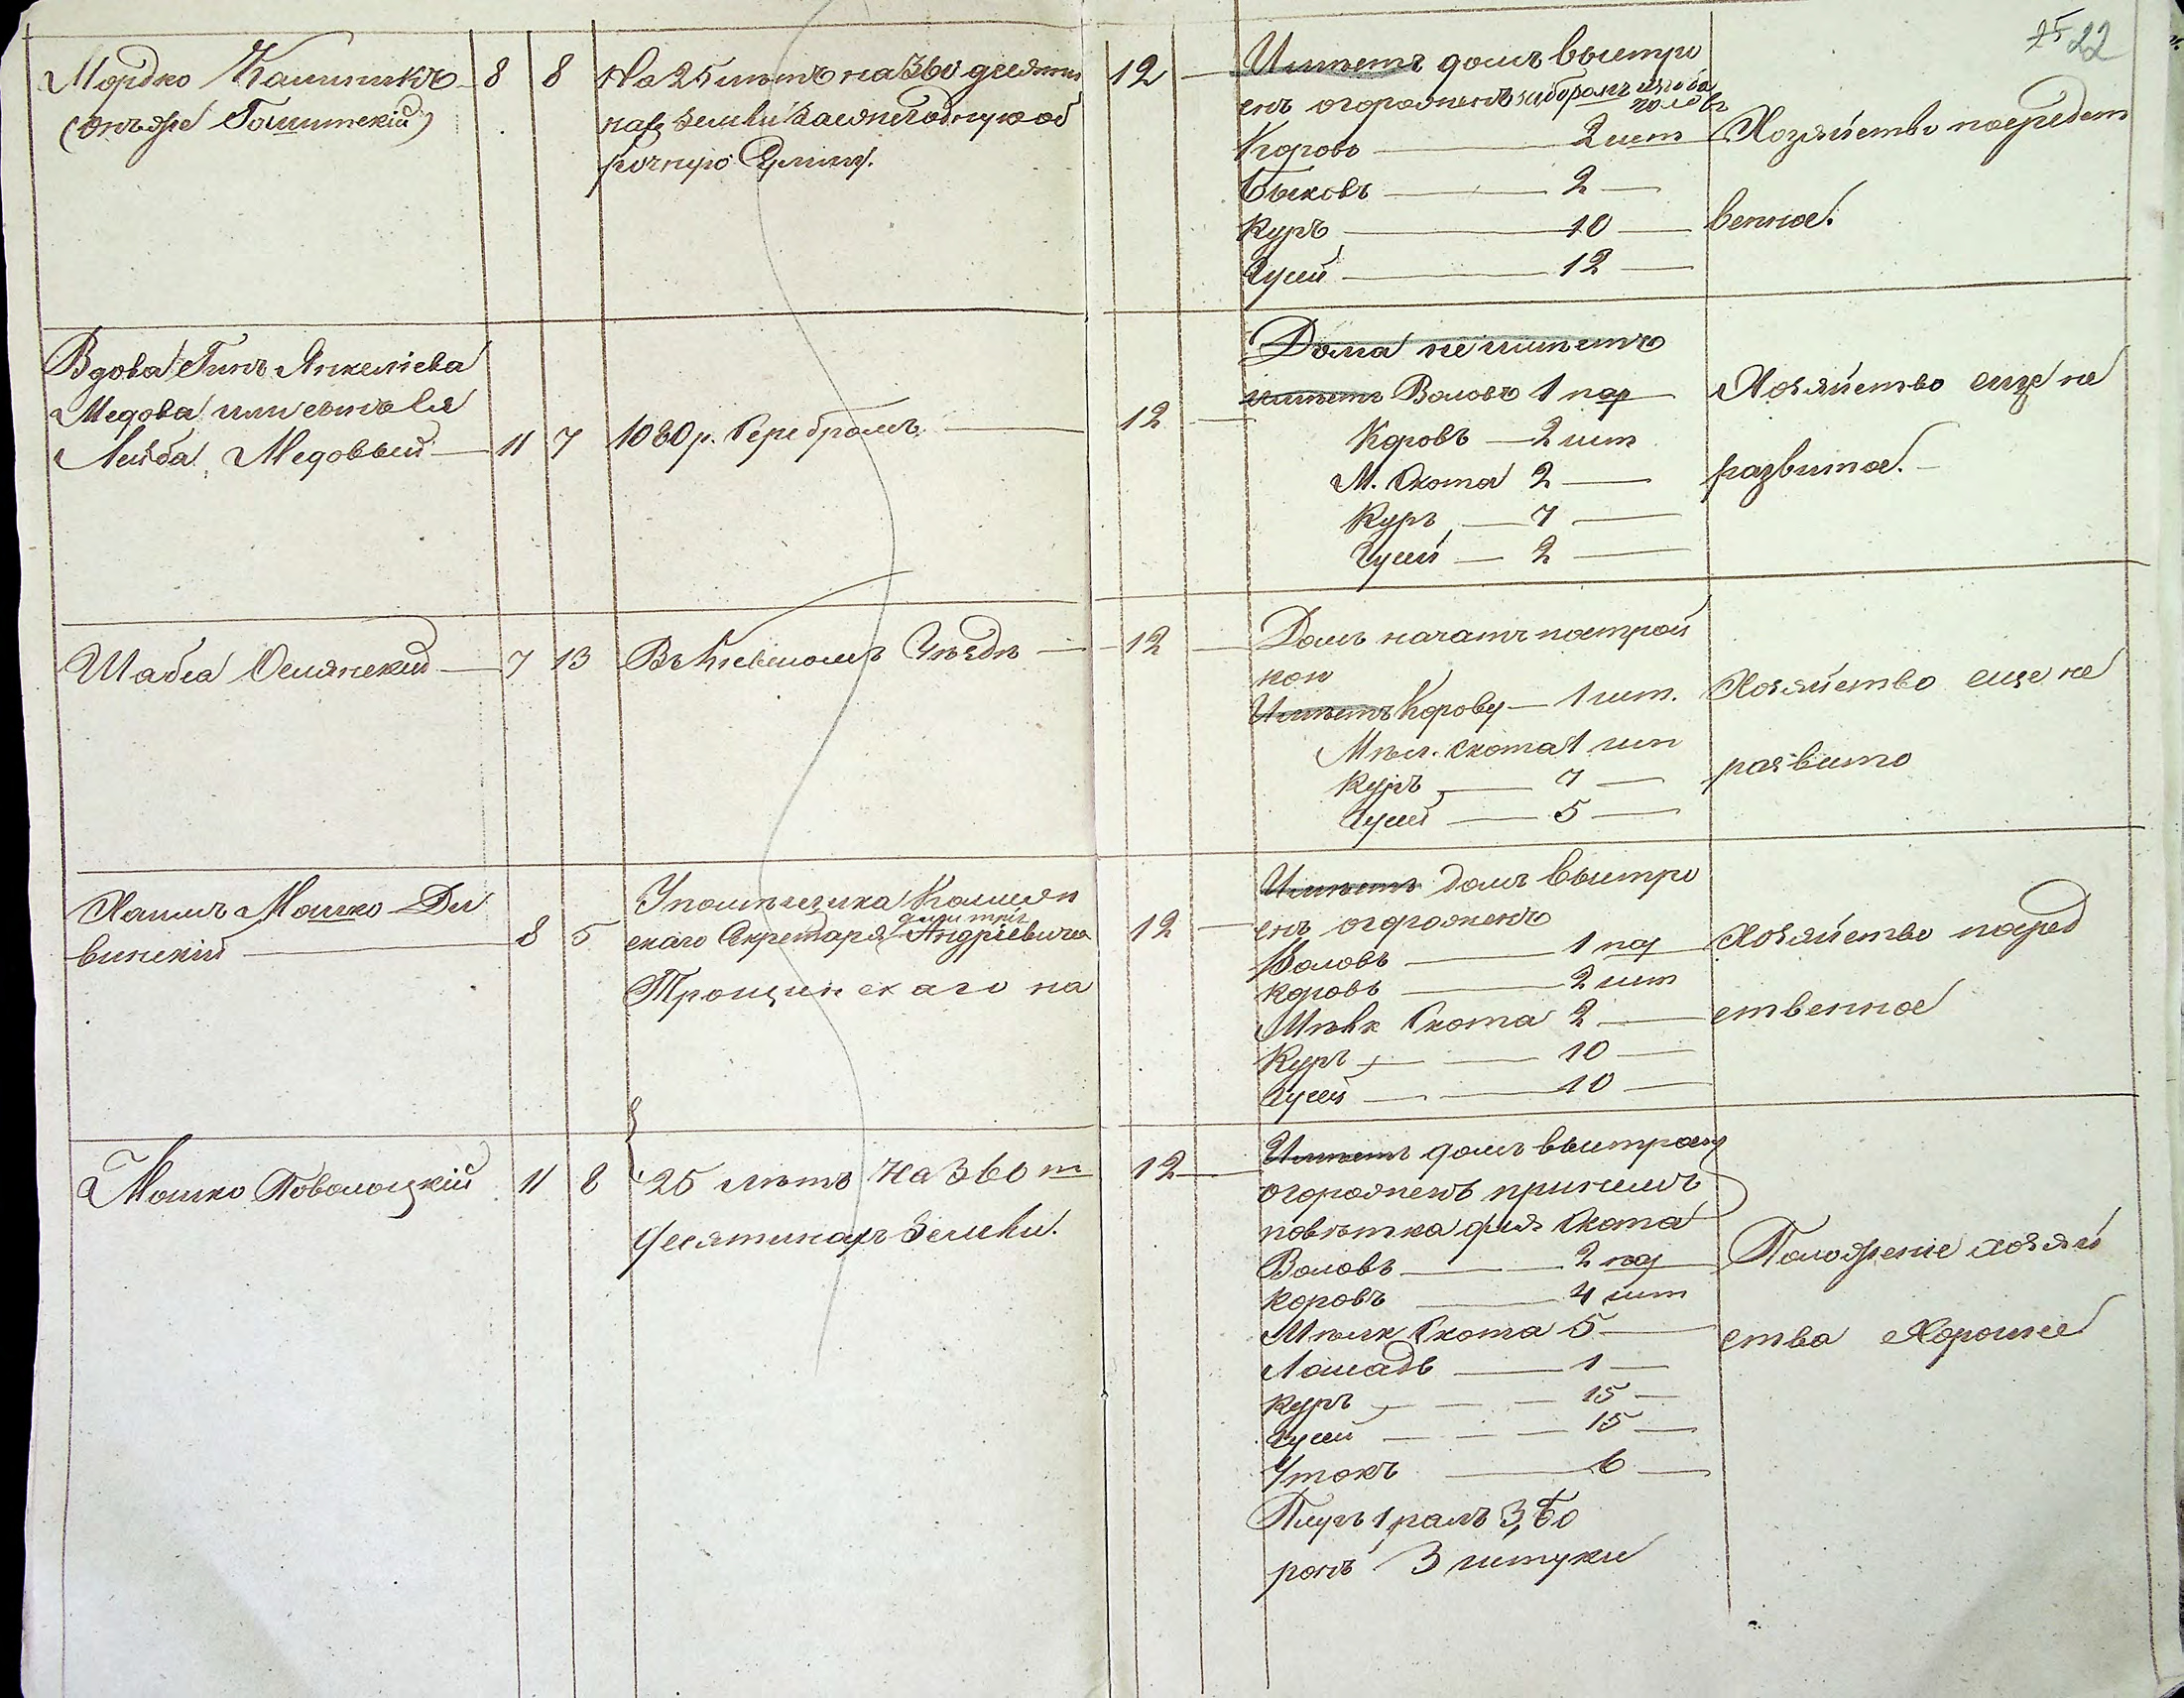 25 22
Мордко Каминикъ 8 8 На 25 летъ на 360 десяти 12
(онъ же Гомитскій)
нах земли
рочную Сумму.
Имѣетъ домъ выстро
енъ огороженъ заборомъ
Коровъ 2 шт
Быковъ 2
Куръ 10
Гусей 12
Хозяйство посредст
венное.
Вдова Янкеліева
Медова или сынъ ея
Лейба Медовый 11 7 1080 р. Серебромъ 12
Дома не имѣетъ
имѣетъ Воловъ 1 пар
Коровъ 2 шт
М. Скота 2
Куръ 7
Гусей 2
Хозяйство еще не
развитое.
Шабса 7 13 Въ Кіевскомъ Уѣздѣ 12
Домъ начатъ построй
кои
Имѣетъ Корову 1 шт.
Мѣл. скота 1 шт
Куръ 7
Гусей 5
Хозяйство еще не
развито
Хаимъ Мошко Ди
винскій 8 5
У помѣщика Колишк
скаго Секретаря Андріевича 12
Дмитрія
Трощинскаго на
Имѣетъ домъ выстро
енъ огороженъ
Воловъ 1 пар
Коровъ 2 шт
Мѣлк Скота 2
Куръ 10
Гусей 10
Хозяйство посред
ственное
Мошко Поволоцкій 11 8 25 летъ на 360 т 12
десятинахъ земли.
Имѣетъ домъ выстроен
огороженъ при немъ
повѣтка для Скота
Воловъ 2 пар
Коровъ 4 шт
Мѣлк Скота 5
Лошадь 1
Куръ 15
Гусей 15
Утокъ 6
Плугъ 1, ралъ 3, бо
ронъ 3 штуки
Положеніе хозяй
ства Хорошее